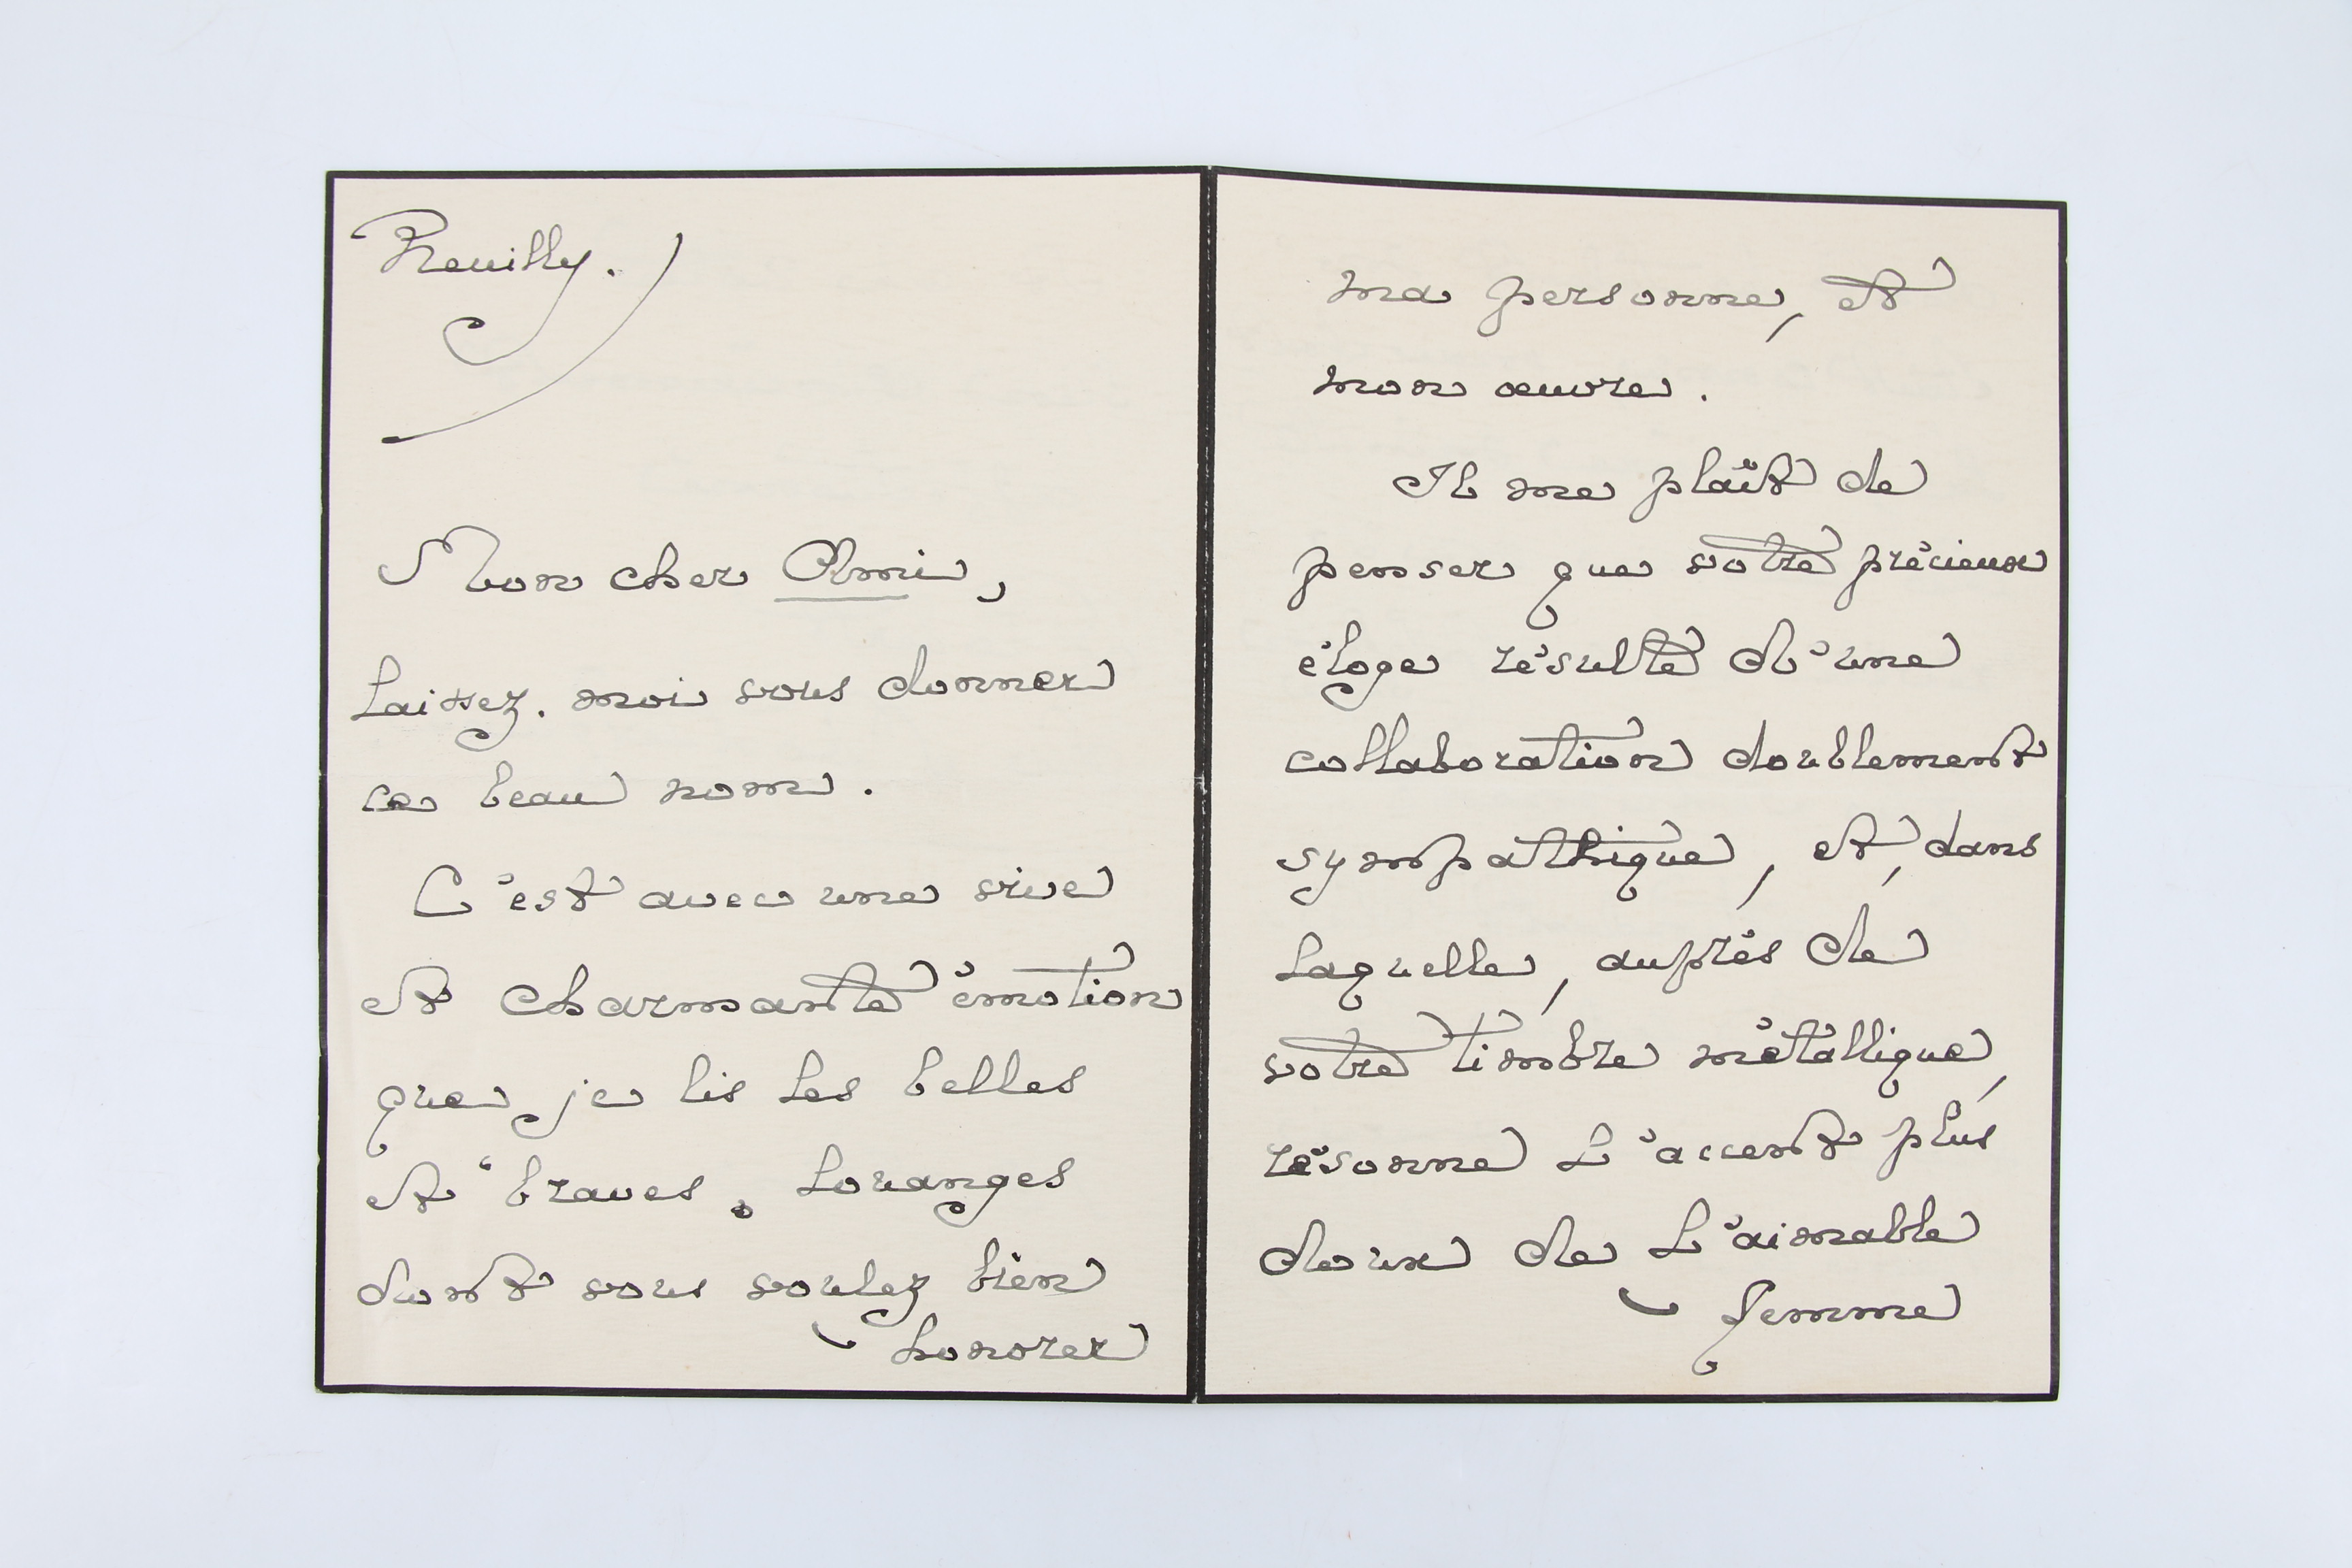 Neuilly.
Mon cher Ami,
Laissez-moi vous donner
ce beau nom.
C'est avec une vive
et charmante émotion
que je lis les belles
et braves louanges
dont vous voulez bien
honorer
ma personne, et
mon œuvre.
Il me plaît de
penser que votre précieux
éloge résulte d'une
collaboration doublement
sympathique, et, dans
laquelle, auprès de
votre timbre métallique,
résonne l'accent plus
doux de l'aimable
femme